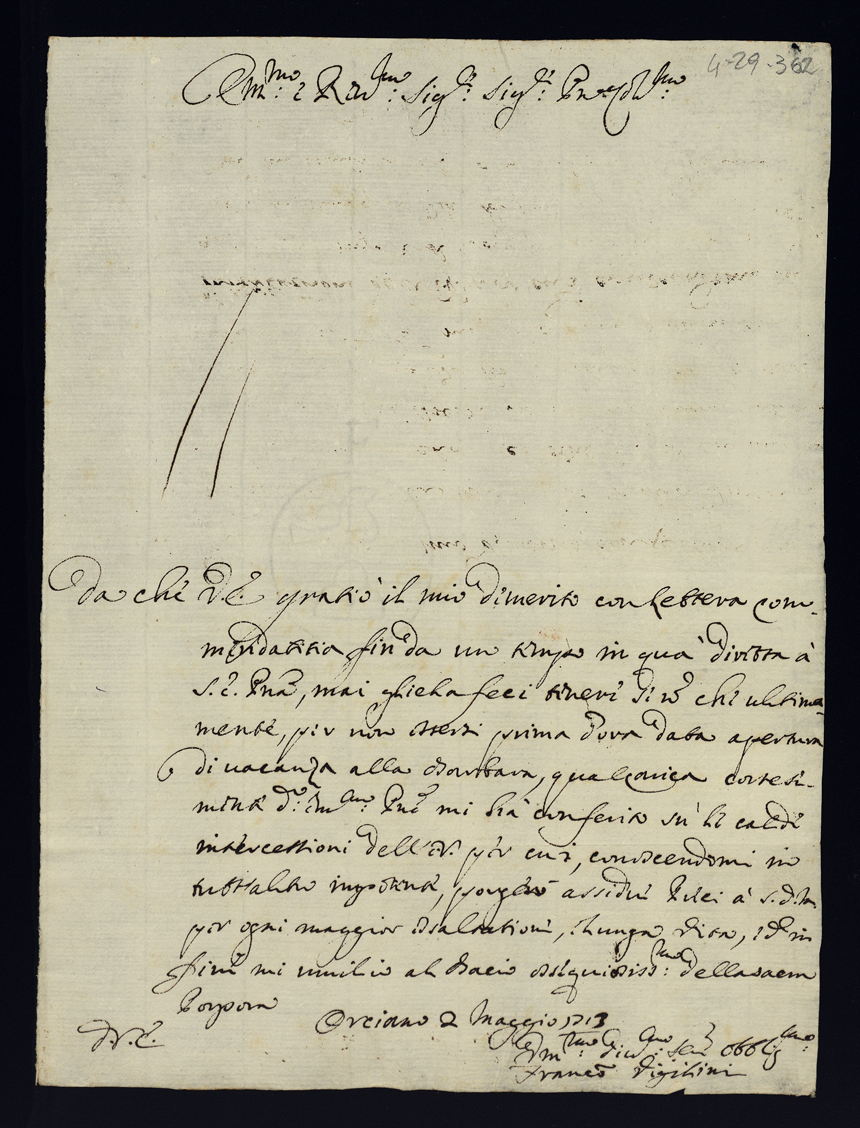 4-29-362
Em:mo e Rev:mo Sig.r Sig.r Pne Col:mo
Da che V.E. gratiò il mio dimerito con lettera com-
mendatitia fin da un tempo in qua diretta à
S.E. Pne, mai gliela feci tenere se nõ che ultima-
mente, per non essersi prima d'ora data apertura
di vacanza alla, qual carica cortese-
mente d.o Em:mo Pne mi hà conferito sù le calde
intercessioni dell'E.V. per cui, conoscendomi in
tutt'altro impotente, porgerò assidue Preci à S.D.M.
per ogni maggior esaltatione, e lunga vita, ed in
fine mi umilio al bacio ossequiosiss:mo della sacra
Porpora
Orciano 2 Maggio 1713
D.V.E.
Um:mo Div:mo Ser.e Obblig:mo
Franc.o Vigilini